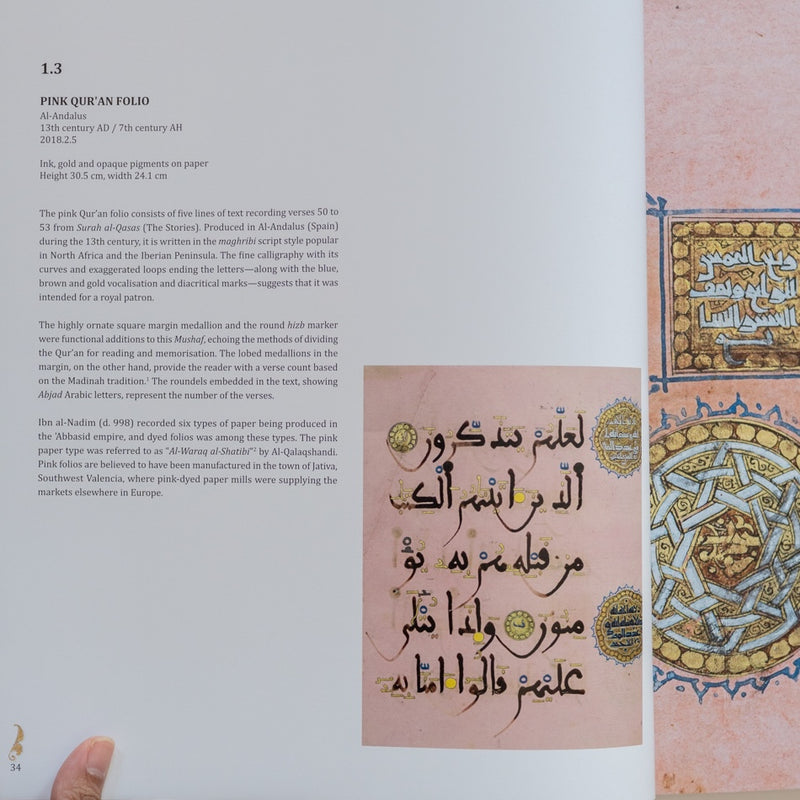 1.3
PINK QUR'AN FOLIO
Al-Andalus
13th century AD / 7th century AH
2018.2.5
Ink, gold and opaque pigments on paper
Height 30.5 cm, width 24.1 cm
The pink Qur'an folio consists of five lines of text recording verses 50 to
53 from Surah al-Qasas (The Stories). Produced in Al-Andalus (Spain)
during the 13th century, it is written in the maghribi script style popular
in North Africa and the Iberian Peninsula. The fine calligraphy with its
curves and exaggerated loops ending the letters—along with the blue,
brown and gold vocalisation and diacritical marks—suggests that it was
intended for a royal patron.
The highly ornate square margin medallion and the round hizb marker
were functional additions to this Mushaf, echoing the methods of dividing
the Qur'an for reading and memorisation. The lobed medallions in the
margin, on the other hand, provide the reader with a verse count based
on the Madinah tradition.¹ The roundels embedded in the text, showing
Abjad Arabic letters, represent the number of the verses.
Ibn al-Nadim (d. 998) recorded six types of paper being produced in
the 'Abbasid empire, and dyed folios was among these types. The pink
paper type was referred to as "Al-Waraq al-Shatibi"² by Al-Qalaqshandi.
Pink folios are believed to have been manufactured in the town of Jativa,
Southwest Valencia, where pink-dyed paper mills were supplying the
markets elsewhere in Europe.
لعلهم يتذكرون
الذين اتينهم الكتب
من قبله هم به يؤ
منون واذا يتلى
عليهم قالوا امنا به
34